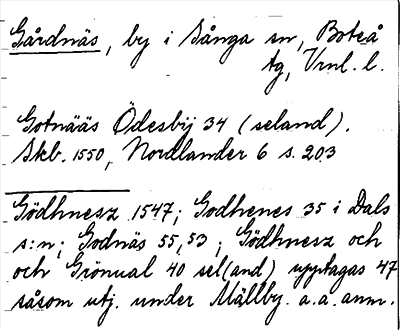 Gårdnäs, by i Sånga sn, Boteå
tg, Vrnl. l.
Gotnääs Ödesbÿ 34 (seland).
Skb. 1550, Nordlander 6 s. 203
Gödhnesz 1547; Godhenes 35 i Dals
s:n; Godnäs 55, 53; Gödhnesz och
och Grönual 40 sel(and) upptagas 47
såsom utj. under Mällby. a.a. anm.